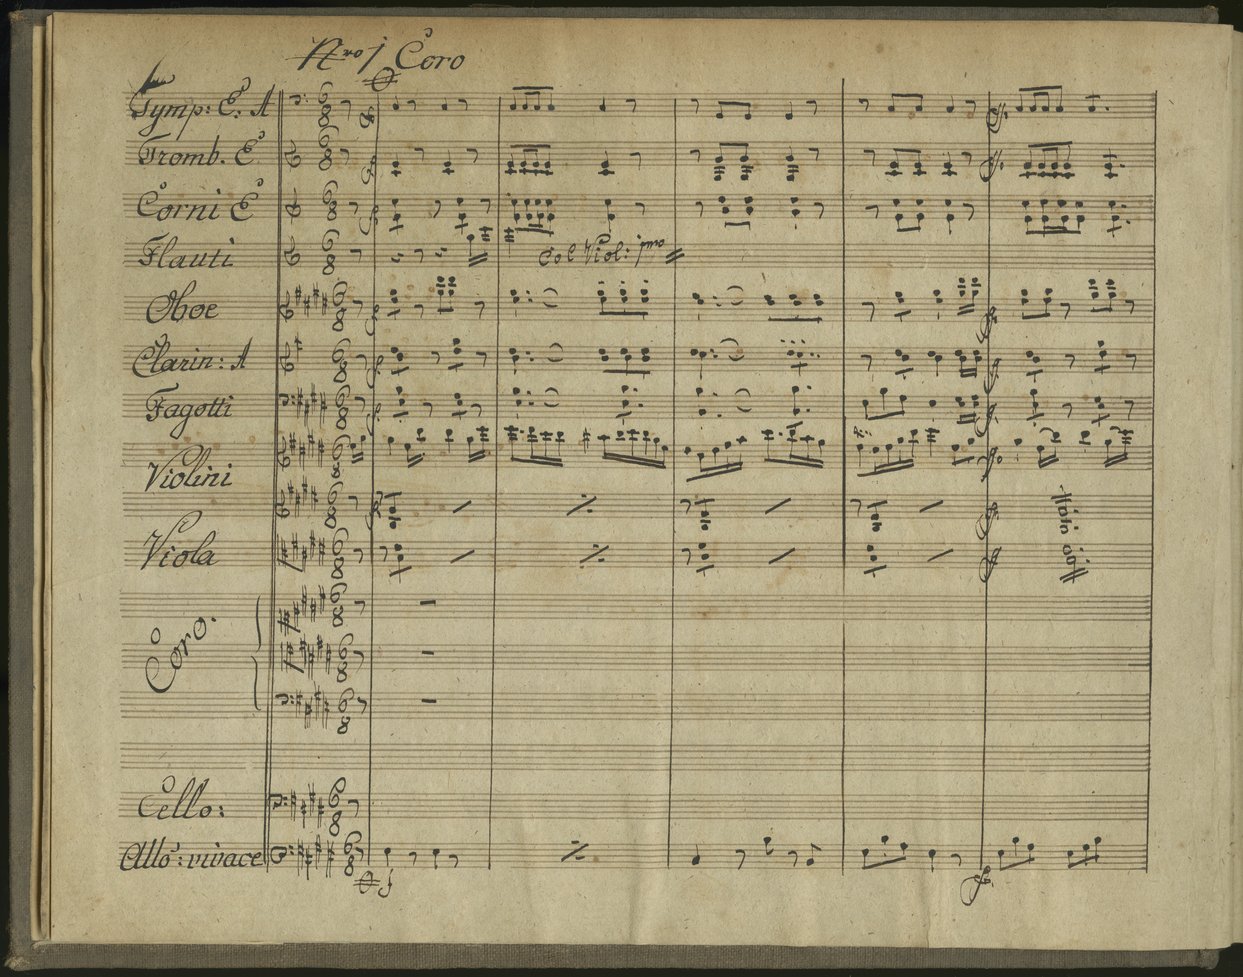 Nro 1 Coro
Tymp: E: A
Tromb. E
Corni E
Flauti
Col Viol: 1mo
Oboe
Clarin: A
Fagotti
Violini
Viola
Coro.
Cello:
Allo: vivace